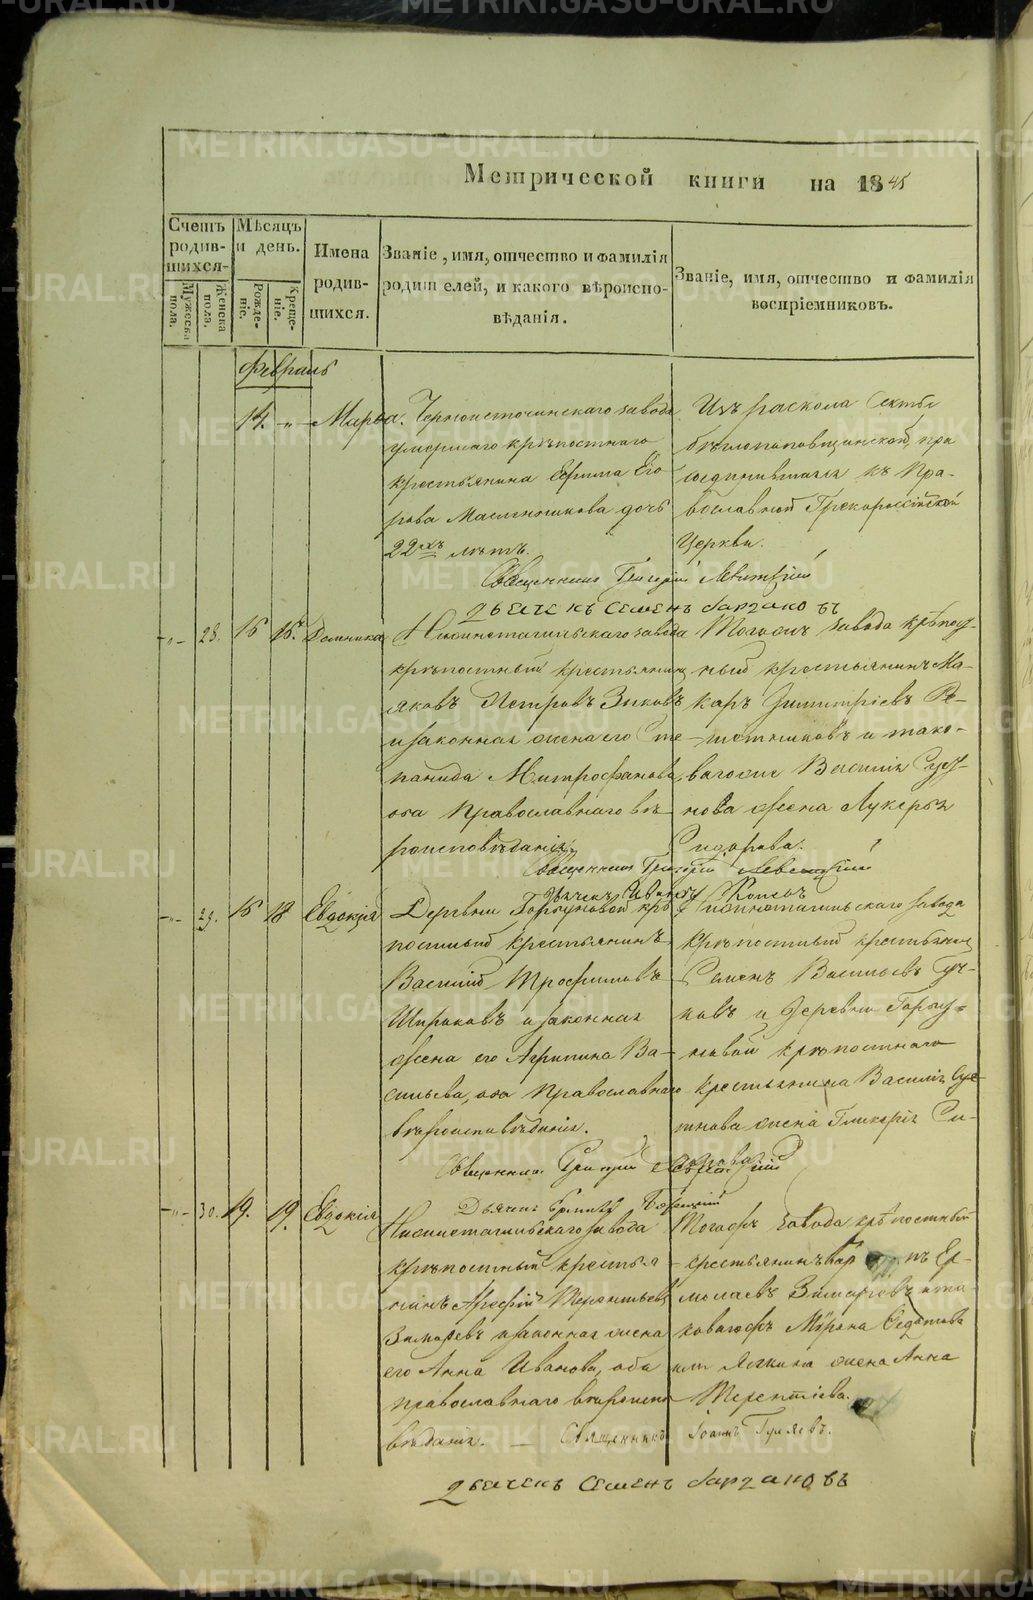 Метрической книги на 1845
Счетъ родив-шихся.
Мѣсяцъ и день.
Имена родив-шихся.
Званіе, имя, отчество и фамилія родителей, и какого вѣроиспо-вѣданія.
Званіе, имя, отчество и фамилія воспріемниковъ.
Мужеска пола.
Женска пола.
Рожде-ніе.
Креще-ніе.
Февраль
14. -"- Марѳа.
Черноисточинскаго завода
умершаго крѣпостнаго
крестьянина Ефима Его-
рова Масленникова дочь
22хъ лѣтъ.
Изъ раскола Секты
бѣглопоповщинской, при
соединившаяся къ Пра-
вославной Грекороссійской
Церкви.
Священникъ Григорій Левитскій
Дьячекъ Семенъ
-"- 28. 16 16. Домника
Нижнетагильскаго завода
крѣпостный крестьянинъ
Яковъ Петровъ Зыковъ
и законная жена его Сте-
панида Митрофанова,
оба Православнаго вѣ-
роисповѣданія.
Тогожъ завода крѣпост-
ный крестьянинъ Ма-
каръ Димитріевъ Ре-
шетниковъ и тако-
ваго же Василія
нова жена Лукерья
Сидорова.
Священникъ Григорій Левитскій
Дьячекъ Иванъ
-"- 29. 16 18 Евдокія
Деревни Горбуновой крѣ-
постный крестьянинъ
Василій Трофимовъ
Широковъ и законная
жена его Агрипина Ва-
сильева, оба Православнаго
вѣроисповѣданія.
Нижнетагильскаго завода
крѣпостный крестьянинъ
Семенъ Васильевъ
ковъ и Деревни Горбу-
новой крѣпостнаго
крестьянина Василія
тнова жена Гликерія
Священникъ Григорій Левитскій
Дьячекъ
-"- 30. 19. 19. Евдокія
Нижнетагильскаго завода
крѣпостный крестья-
нинъ Терентьевъ
Зимаревъ и законная жена
его Анна Иванова, оба
православнаго вѣроиспо
вѣданія.
Тогожъ завода крѣпостный
крестьянинъ Ер-
молаевъ Зимаревъ и та-
коваго жъ Мирона Федотова
жена Анна
Терентіева.
Священникъ Іоаннъ Гуляевъ.
Дьячекъ Семенъ